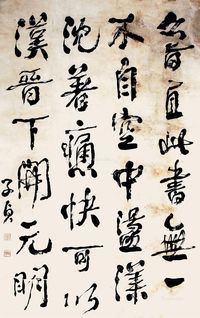 此書無一
不自空中盪漾
沈著痛快可以
漢晉下開元明
子貞